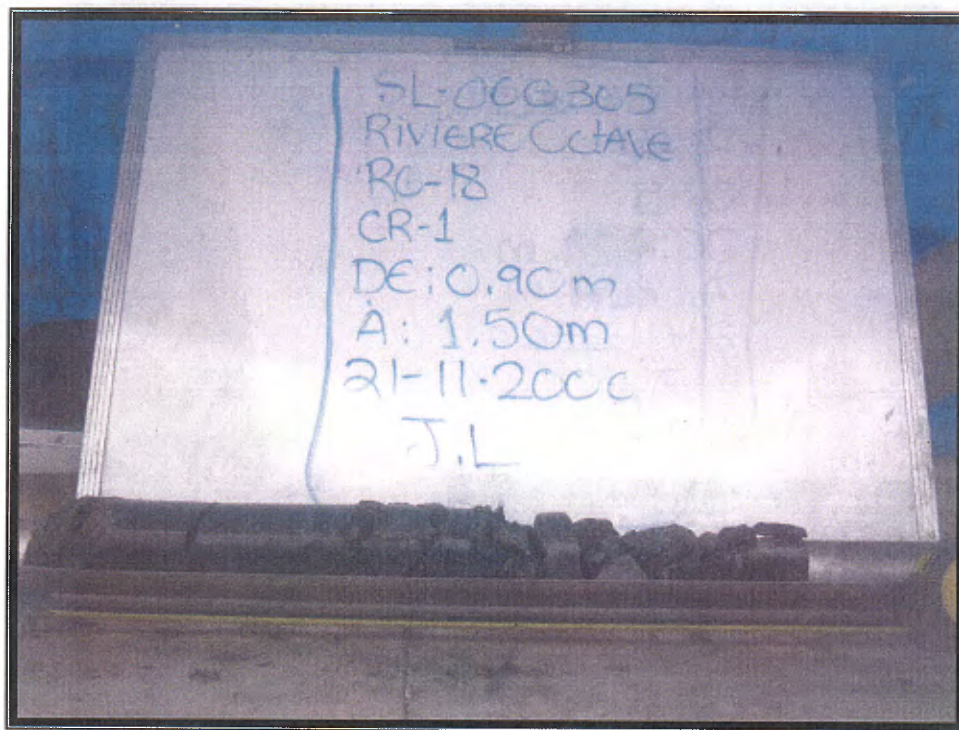 SL-000305
RIVIERE OCTAVE
RC-18
CR-1
DE: 0.90m
À: 1.50m
21-11-2000
J.L